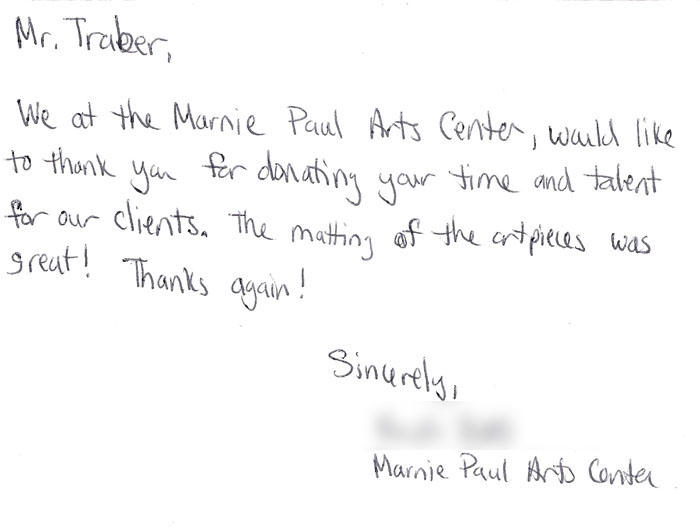 Mr. Traber,
We at the Marnie Paul Arts Center, would like
to thank you for donating your time and talent
for our clients. The matting of the artpieces was
great! Thanks again!
Sincerely,
Marnie Paul Arts Center